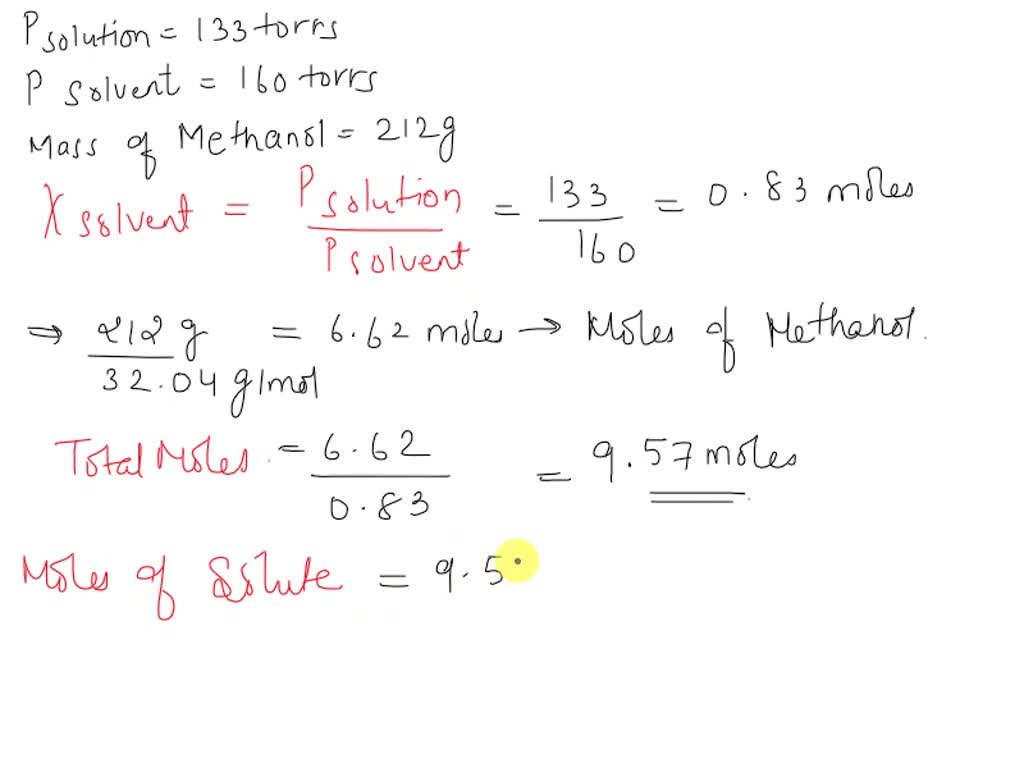 P solution = 133 torrs
P solvent = 160 torrs
Mass of Methanol = 212g
X solvent = P solution / P solvent = 133 / 160 = 0.83 moles
⇒ 212 g / 32.04 g/mol = 6.62 moles → Moles of Methanol.
Total Moles = 6.62 / 0.83 = 9.57 moles
Moles of Solute = 9.5